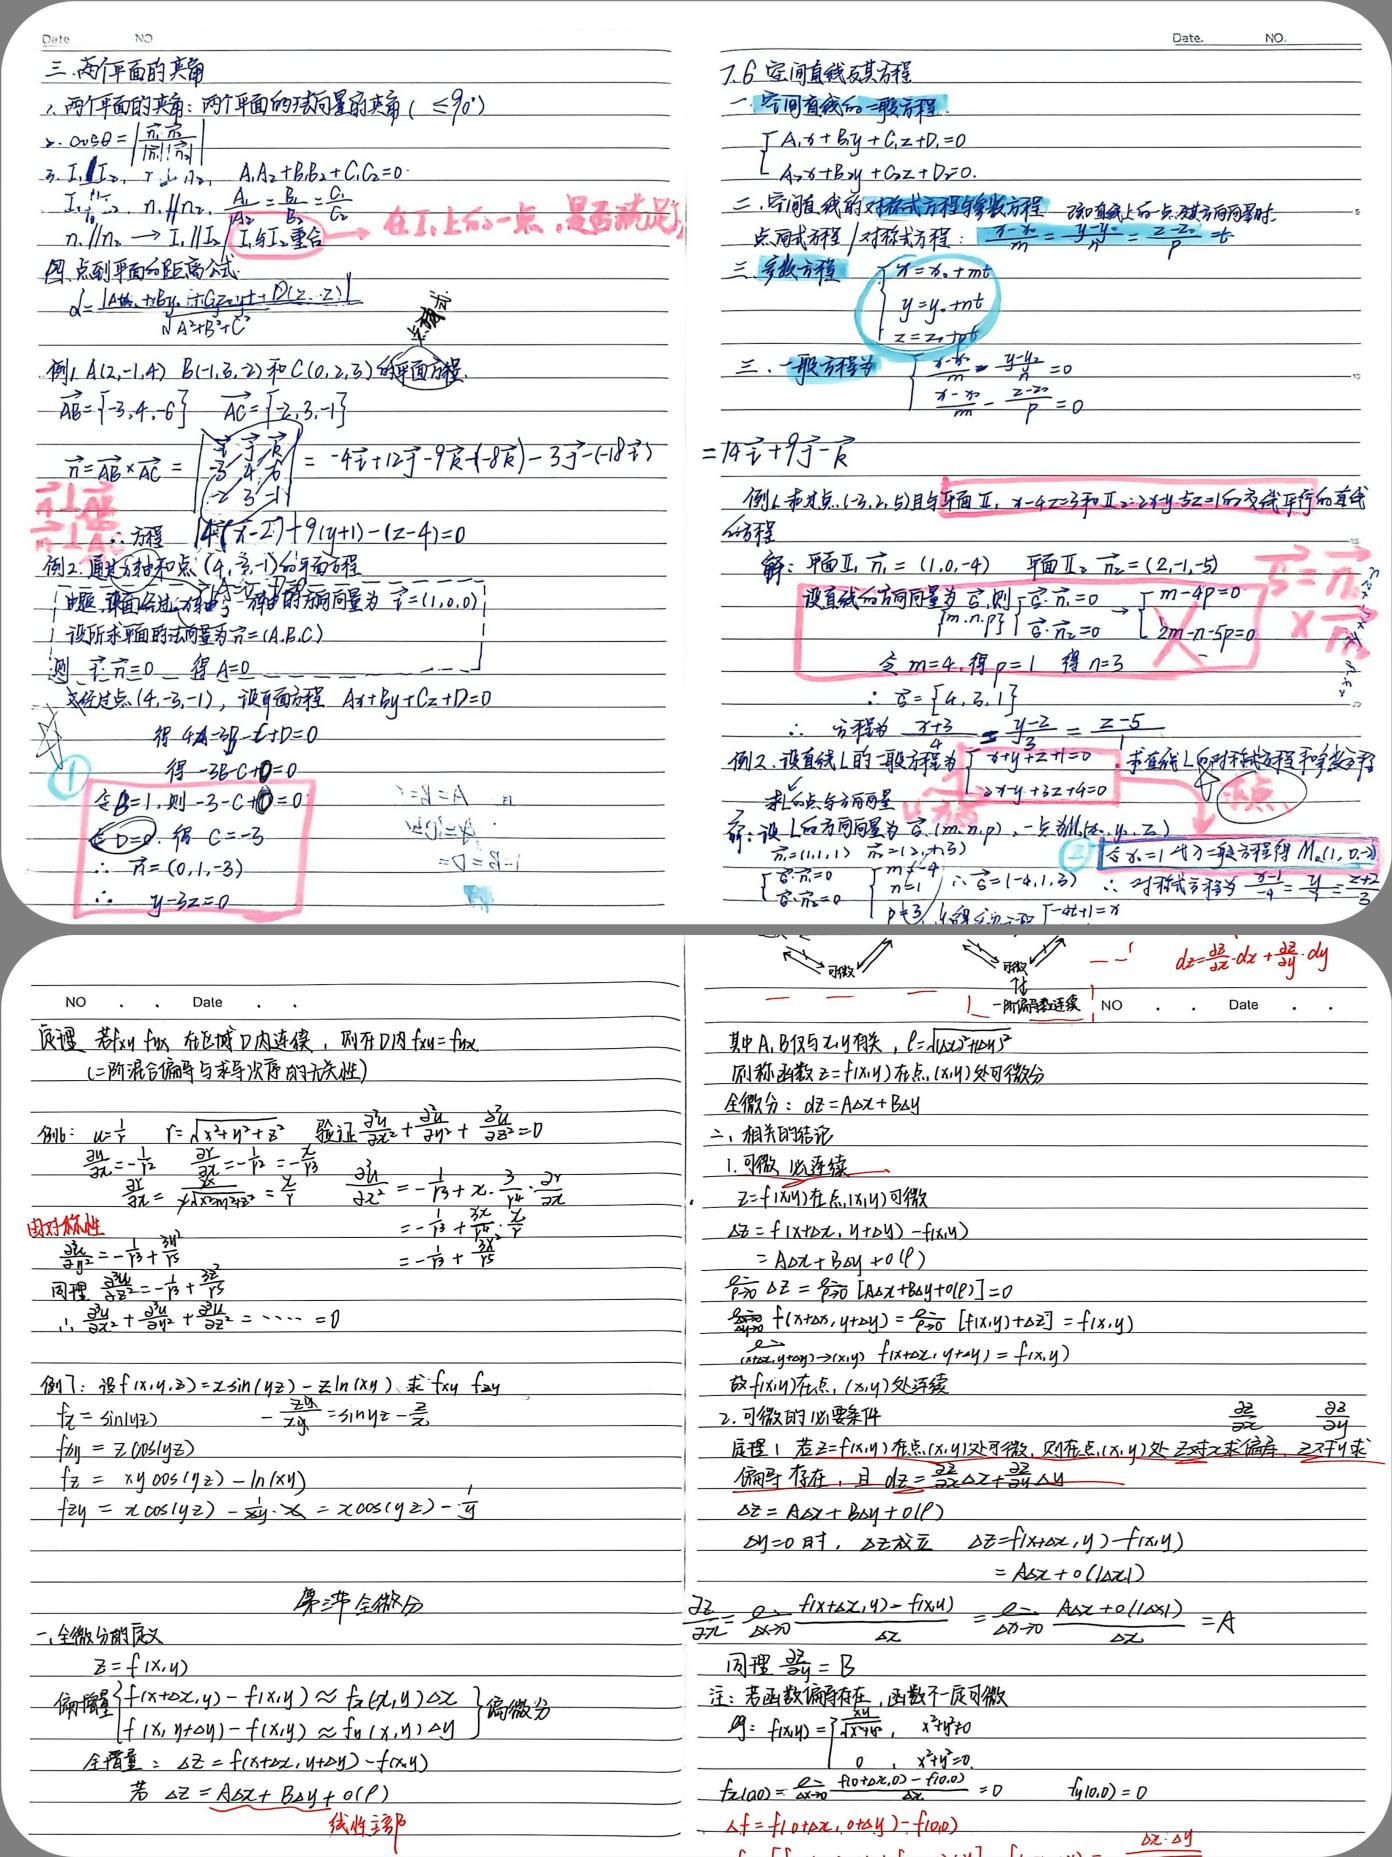 Date NO
三.两个平面的夹角
1.两个平面的夹角:两个平面的法向量的夹角( ≤90°)
2. cosθ=|n₁·n₂ / |n₁||n₂||
A₁A₂+B₁B₂+C₁C₂=0
n₁∥n₂, A₁/A₂=B₁/B₂=C₁/C₂
n₁∥n₂ → I₁∥I₂ / I₁与I₂重合
在I₁上的一点,是否满足I₂
四.点到平面的距离公式
√A²+B²+C²
点法式
例1. A(2,-1,4) B(-1,3,-2)和C(0,2,3)的平面方程.
AB={-3,4,-6} AC={-2,3,-1}
n=AB×AC = | i j k -3 4 -6 -2 3 -1 | = -4i+12j-9k-(-8k)-3j-(-18i)
n⊥AB
n⊥AC
∴方程 14(x-2)+9(y+1)-(z-4)=0
例2.通过x轴和点(4,-3,-1)的平面方程
由题,平面经过x轴,x轴的方向向量为 i=(1,0,0)
设所求平面的法向量为n=(A,B,C)
则 i·n=0 得A=0
又经过点(4,-3,-1),设平面方程 Ax+By+Cz+D=0
得 4A-3B-C+D=0
得 -3B-C+0=0
①
令B=1,则 -3-C+0=0
令D=0. 得 C=-3
∴ n=(0,1,-3)
∴ y-3z=0
Date. NO.
7.6 空间直线及其方程
一.空间直线的一般方程.
{A₁x+B₁y+C₁z+D₁=0
A₂x+B₂y+C₂z+D₂=0.
二.空间直线的对称式方程与参数方程 已知直线上的一点及其方向向量时.
点向式方程/对称式方程: x-x₀/m = y-y₀/n = z-z₀/p = t
三.参数方程 {x=x₀+mt
y=y₀+nt
z=z₀+pt
三.一般方程为 {x-x₀/m - y-y₀/n =0
x-x₀/m - z-z₀/p =0
=14i+9j-k
例1.求过点(-3,2,5)且与平面Ⅱ₁ x-4z=3和Ⅱ₂:2x-y-5z=1的交线平行的直线
的方程
解:平面Ⅱ₁ n₁=(1,0,-4) 平面Ⅱ₂ n₂=(2,-1,-5)
设直线的方向向量为s,则{s·n₁=0 → {m-4p=0
{m.n.p} s·n₂=0 2m-n-5p=0
s=n₁
×n₂
令 m=4,得 p=1 得 n=3
∴ s={4,3,1}
∴ 方程为 x+3/4 = y-2/3 = z-5/1
例2.设直线L的一般方程为 {x+y+z+1=0 .求直线L的对称式方程和参数方程
2x-y+3z+4=0
求L的点与方向向量
求点
解:设L的方向向量为s(m,n,p),一点为M₀(x₀,y₀,z₀)
n₁=(1,1,1) n₂=(2,-1,3)
② 令x₀=1 代入一般方程得 M₀(1,0,-2)
{s·n₁=0 s·n₂=0 {m=-4 n=1 p=3 ∴s=(-4,1,3) ∴对称式方程为 x-1/-4 = y/1 = z+2/3
{-4t+1=x
NO . . Date . .
定理 若fxy fyx 在区域D内连续,则在D内fxy=fyx
(二阶混合偏导与求导次序的无关性)
例6: u=1/r r=√x²+y²+z² 验证∂²u/∂x²+∂²u/∂y²+∂²u/∂z²=0
∂u/∂x=-1/r² ∂r/∂x=-1/r²=-x/r³
∂r/∂x=2x/2√x²+y²+z²=x/r ∂²u/∂x²=-1/r³+x·3/r⁴·∂r/∂x
由对称性 =-1/r³+3x/r⁴·x/r
∂²u/∂y²=-1/r³+3y²/r⁵ =-1/r³+3x²/r⁵
同理 ∂²u/∂z²=-1/r³+3z²/r⁵
∴ ∂²u/∂x²+∂²u/∂y²+∂²u/∂z²=·····=0
例7:设f(x,y,z)=xsin(yz)-zln(xy).求 fxy fzy
fx=sin(yz) - zy/xy =sinyz-z/x
fxy=zcos(yz)
fz= xycos(yz)-ln(xy)
fzy=xcos(yz)-1/xy·x=xcos(yz)-1/y
第三节 全微分
一.全微分的定义
z=f(x,y)
偏增量{f(x+Δx,y)-f(x,y)≈fx(x,y)Δx
f(x,y+Δy)-f(x,y)≈fy(x,y)Δy}偏微分
全增量: Δz=f(x+Δx,y+Δy)-f(x,y)
若 Δz=AΔx+BΔy+o(ρ)
线性主部
可微 可微
dz=∂z/∂x·dx+∂z/∂y·dy
一阶偏导数连续
NO . . Date . .
其中A,B仅与x,y有关,ρ=√(Δx)²+(Δy)²
则称函数z=f(x,y)在点(x,y)处可微分
全微分: dz=AΔx+BΔy
二、相关的结论
1.可微必连续
z=f(x,y)在点(x,y)可微
Δz=f(x+Δx,y+Δy)-f(x,y)
=AΔx+BΔy+o(ρ)
lim ρ→0 Δz=lim ρ→0 [AΔx+BΔy+o(ρ)]=0
lim Δx→0 Δy→0 f(x+Δx,y+Δy)=lim ρ→0 [f(x,y)+Δz]=f(x,y)
lim (x+Δx,y+Δy)→(x,y) f(x+Δx,y+Δy)=f(x,y)
故f(x,y)在点(x,y)处连续
2.可微的必要条件 ∂z/∂x ∂z/∂y
定理1 若z=f(x,y)在点(x,y)处可微,则在点(x,y)处z对x求偏导,z对y求
偏导存在,且 dz=∂z/∂xΔx+∂z/∂yΔy
Δz=AΔx+BΔy+o(ρ)
Δy=0时,Δz成立 Δz=f(x+Δx,y)-f(x,y)
=AΔx+o(|Δx|)
∂z/∂x=lim Δx→0 f(x+Δx,y)-f(x,y)/Δx =lim Δx→0 AΔx+o(|Δx|)/Δx =A
同理 ∂z/∂y=B
注:若函数偏导存在,函数不一定可微
例: f(x,y)={xy/√x²+y², x²+y²≠0
0 , x²+y²=0.
fx(0,0)=lim Δx→0 f(0+Δx,0)-f(0,0)/Δx =0 fy(0,0)=0
Δf=f(0+Δx,0+Δy)-f(0,0)
Δx·Δy